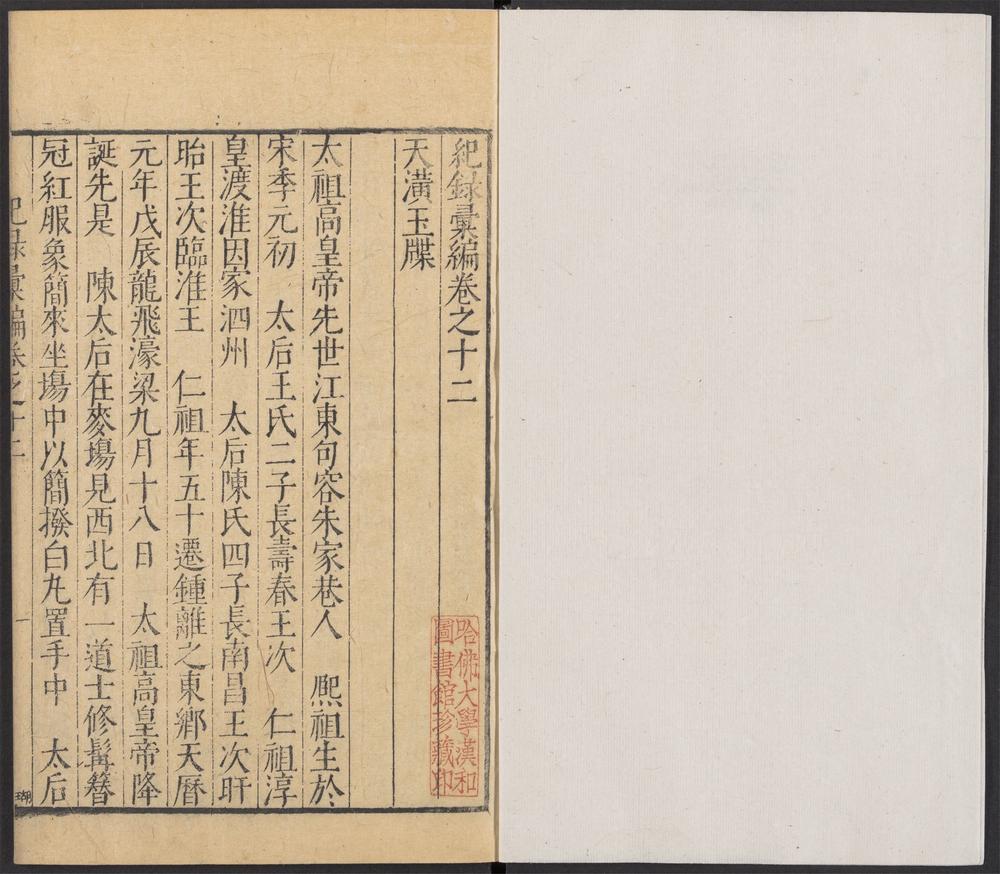 紀録彙編卷之十二
天潢玉牒
太祖高皇帝先世江東句容朱家巷人　熈祖生於
宋季元初　太后王氏二子長壽春王次　仁祖淳
皇渡淮因家泗州　太后陳氏四子長南昌王次盱
眙王次臨淮王　仁祖年五十遷鍾離之東鄉天曆
元年戊辰龍飛濠梁九月十八日　太祖高皇帝降
誕先是　陳太后在麥塲見西北有一道士修髯簪
冠紅服象簡來坐塲中以簡撥白丸置手中　太后
紀録彙編卷之十二　一
哈佛大學漢和
圖書館珍藏印